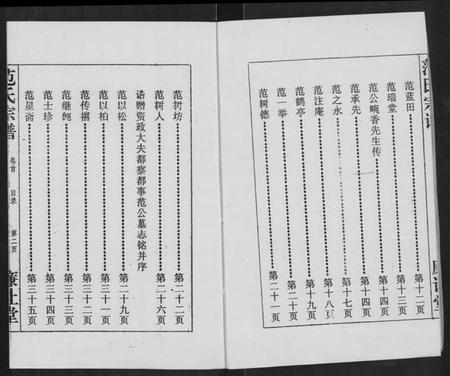 范蓝田……………………第十二页
范瑞堂……………………第十三页
范公畹香先生传……………………第十四页
范承先……………………第十四页
范之永……………………第十七页
范注庵……………………第十八页
范鹤亭……………………第十九页
范一举……………………第二十页
范树德……………………第二十一页
范树坊……………………第二十二页
范树人……………………第二十六页
诰赠资政大夫都察都事范公墓志铭并序
范以松……………………第二十九页
范以柏……………………第三十一页
范传禧……………………第三十二页
范继绳……………………第三十三页
范士珍……………………第三十四页
范星斋……………………第三十五页
范氏宗谱 卷首 目录 第二页